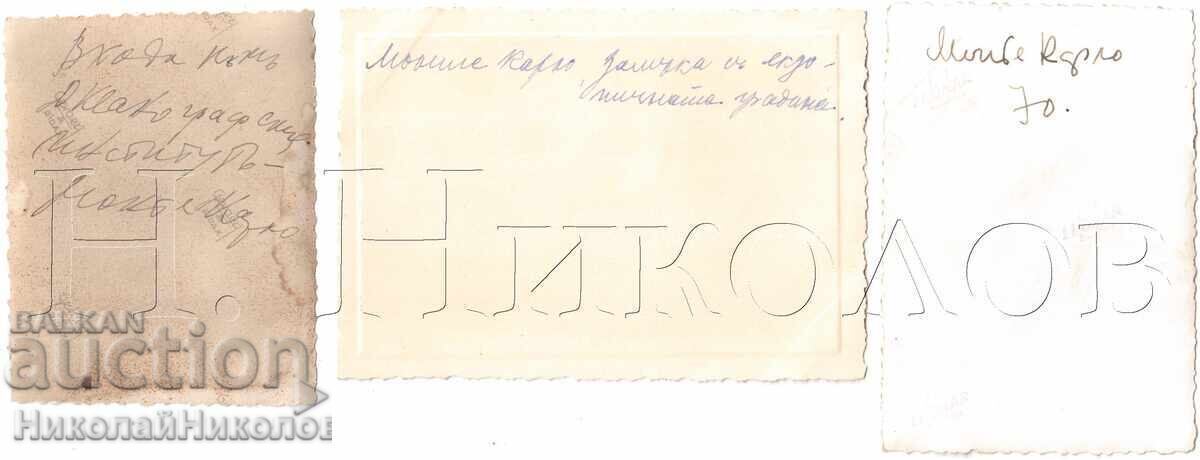 Входа къмъ
Океанографския
институтъ –
Монте Карло
Монте Карло, Залмка съ екзо-
тичната градина.
Монте Карло
70.
Н. Николов
BALKAN
auction
НиколайНиколов